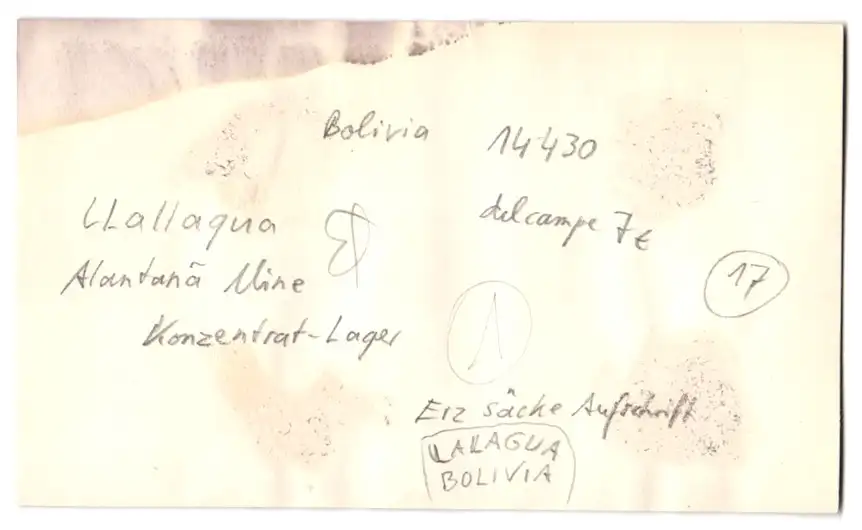 Bolivia
14430
LLallaqua
delcampe 7€
Alantanã Mine
17
Konzentrat-Lager
1
Erz säcke Aufschrift
LLALLAGUA
BOLIVIA